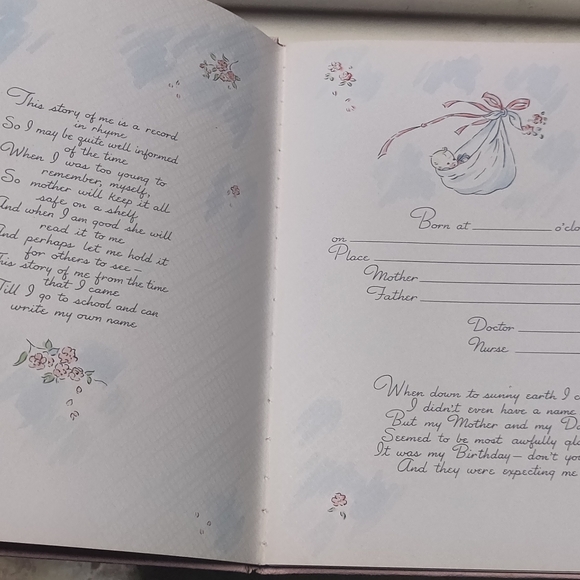 This story of me is a record
in rhyme
So I may be quite well informed
of the time
When I was too young to
remember, myself,
So mother will keep it all
safe on a shelf
And when I am good she will
read it to me
And perhaps let me hold it
for others to see—
This story of me from the time
that I came
Till I go to school and can
write my own name
Born at o'clo
on
Place
Mother
Father
Doctor
Nurse
When down to sunny earth I c
I didn't even have a name
But my Mother and my Da
Seemed to be most awfully gla
It was my Birthday— don't you
And they were expecting me